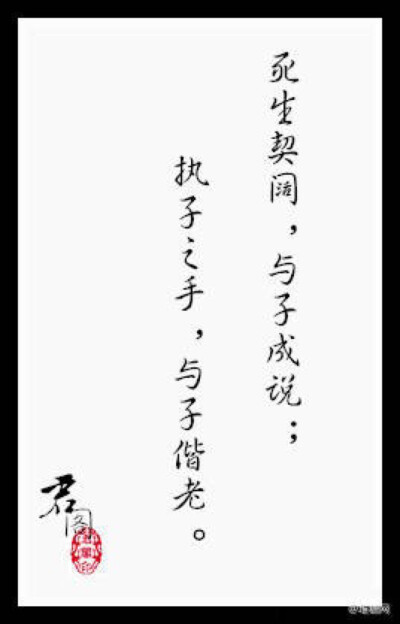 死生契阔，与子成说；
执子之手，与子偕老。
君
阁